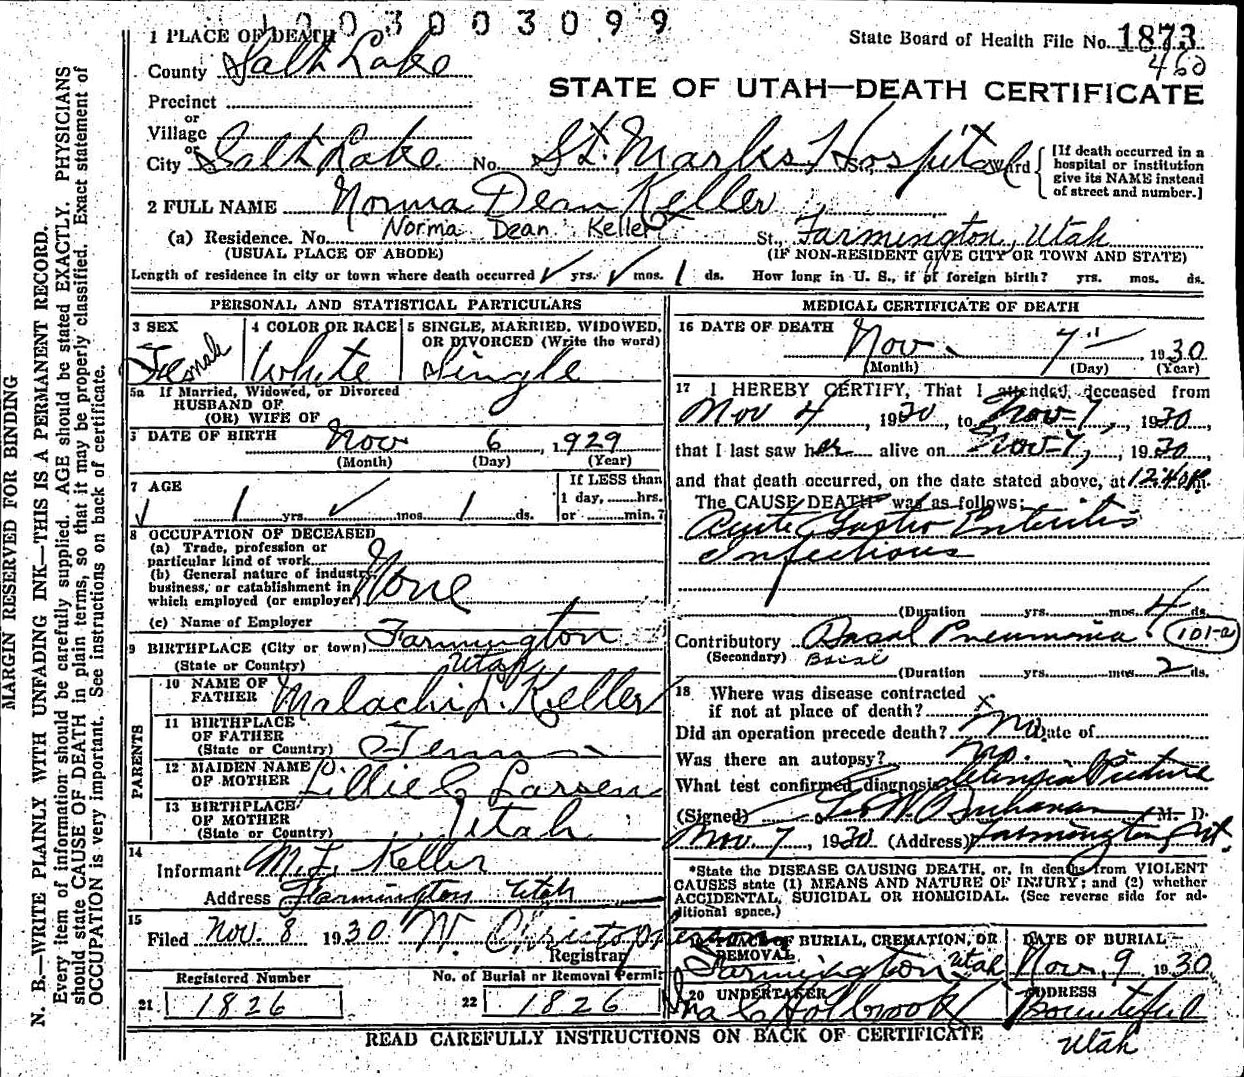 1003003099
1 PLACE OF DEATH
State Board of Health File No. 1873
460
County Salt Lake
STATE OF UTAH—DEATH CERTIFICATE
Precinct
or
Village
or
City Salt Lake No. St. Marks Hospital St., Ward
[If death occurred in a hospital or institution give its NAME instead of street and number.]
2 FULL NAME Norma Dean Keller
(a) Residence. No. Norma Dean Keller St., Farmington, Utah
(USUAL PLACE OF ABODE) (IF NON-RESIDENT GIVE CITY OR TOWN AND STATE)
Length of residence in city or town where death occurred ✓ yrs. ✓ mos. 1 ds. How long in U. S., if of foreign birth? yrs. mos. ds.
PERSONAL AND STATISTICAL PARTICULARS
3 SEX 4 COLOR OR RACE 5 SINGLE, MARRIED, WIDOWED,
OR DIVORCED (Write the word)
Female White Single
5a If Married, Widowed, or Divorced
HUSBAND OF
(OR) WIFE OF
DATE OF BIRTH Nov 6, 1929
(Month) (Day) (Year)
7 AGE If LESS than
1 day, hrs.
1 yrs. ✓ mos. 1 ds. or min.?
8 OCCUPATION OF DECEASED
(a) Trade, profession or
particular kind of work
(b) General nature of industry,
business, or establishment in
which employed (or employer) None
(c) Name of Employer
9 BIRTHPLACE (City or town) Farmington
(State or Country) Utah
PARENTS
10 NAME OF
FATHER Malachi L. Keller
11 BIRTHPLACE
OF FATHER
(State or Country) Tenn
12 MAIDEN NAME
OF MOTHER Lillie C Larsen
13 BIRTHPLACE
OF MOTHER
(State or Country) Utah
14
Informant M. L. Keller
Address Farmington Utah
15
Filed Nov. 8 1930 W Christopherson
Registrar
Registered Number No. of Burial or Removal Permit
21 1826 22 1826
MEDICAL CERTIFICATE OF DEATH
16 DATE OF DEATH Nov. 7 1930
(Month) (Day) (Year)
17 I HEREBY CERTIFY, That I attended deceased from
Nov 4, 1930, to Nov-7, 1930,
that I last saw her alive on Nov-7, 1930,
and that death occurred, on the date stated above, at 12:40 m.
The CAUSE DEATH was as follows:
Acute Gastro Enteritis
Infectious
(Duration yrs. mos. 4 ds.
Contributory Basal Pneumonia. 101-a
(Secondary) Basal
(Duration yrs. mos. 2 ds.
18 Where was disease contracted
if not at place of death? x
Did an operation precede death? no Date of
Was there an autopsy? no.
What test confirmed diagnosis? Picture
(Signed) Buchanan (M. D.
Nov 7, 1930 (Address) Farmington Ut.
*State the DISEASE CAUSING DEATH, or, in deaths from VIOLENT
CAUSES state (1) MEANS AND NATURE OF INJURY; and (2) whether
ACCIDENTAL, SUICIDAL OR HOMICIDAL. (See reverse side for ad-
ditional space.)
PLACE OF BURIAL, CREMATION, OR DATE OF BURIAL
REMOVAL
Farmington Utah Nov. 9 1930
20 UNDERTAKER ADDRESS
Holbrook Bountiful
Utah
READ CAREFULLY INSTRUCTIONS ON BACK OF CERTIFICATE
MARGIN RESERVED FOR BINDING
N. B.—WRITE PLAINLY WITH UNFADING INK—THIS IS A PERMANENT RECORD.
Every item of information should be carefully supplied. AGE should be stated EXACTLY. PHYSICIANS
should state CAUSE OF DEATH in plain terms, so that it may be properly classified. Exact statement of
OCCUPATION is very important. See instructions on back of certificate.